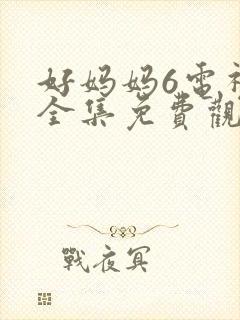 好妈妈6电视
全集免費觀
戰夜冥